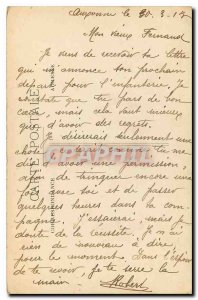 Auxonne le 20-3-17
Mon vieux Fernand
Je viens de recevoir ta lettre
que m'annonce ton prochain
départ pour l'infanterie, je
constate que tu pars de bon
cœur, mais cela vaut mieux
que d'avoir des regrets.
Je désirerais seulement une
chose
me d'avoir une permission,
afin de trinquer encore une
fois avec toi et de passer
quelques heures dans la com-
pagnie. J'essaierai, mais je
doute de la réussite. Je n'ai
rien de nouveau à dire
pour le moment. Dans l'espoir
de te revoir, je te serre la
main. Robert
CARTE POSTALE
CORRESPONDANCE
ADRESSE
DELCAMPE